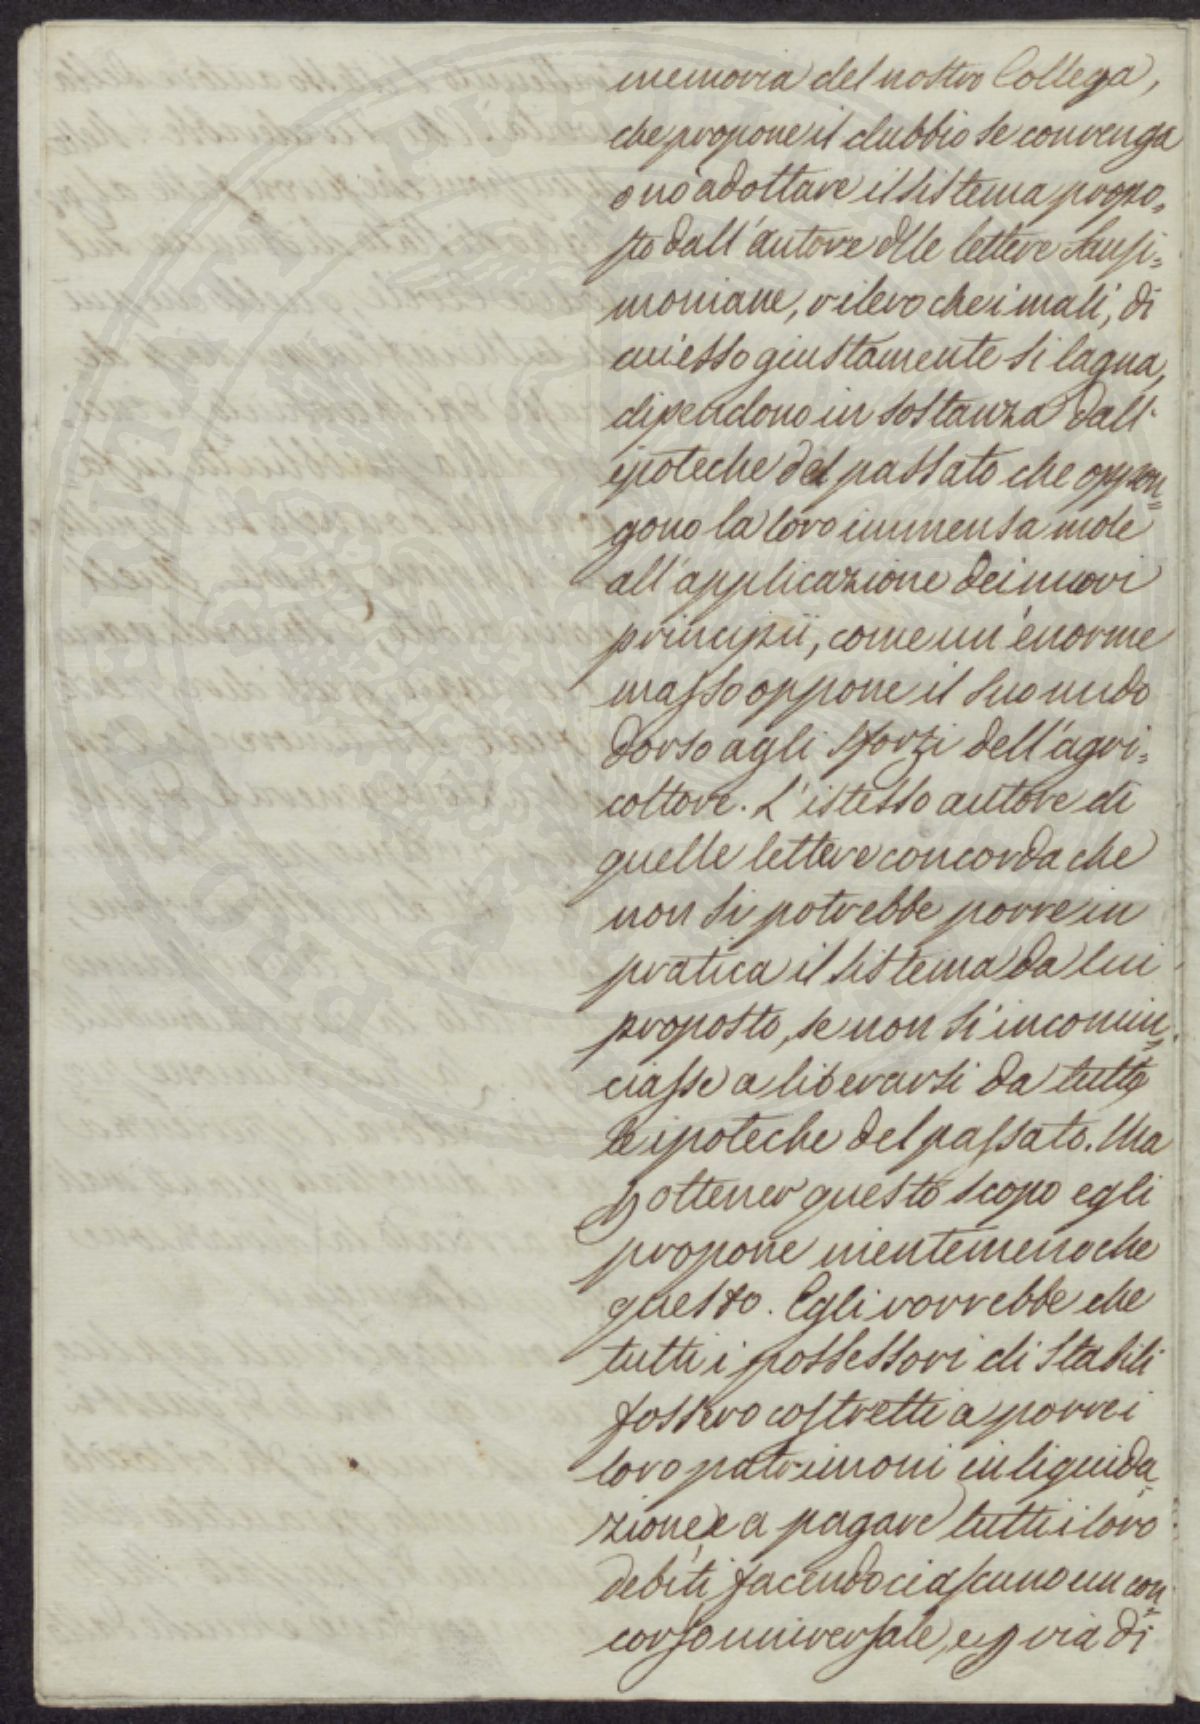 memoria del nostro Collega,
che propone il dubbio se convenga
o no adottare il sistema propo=
sto dall'autore dlle lettere Sansi=
moniane, rilevo che i mali, di
cui esso giustamente si lagna,
dipendono in sostanza dall'
ipoteche del passato che oppon=
gono la loro immensa mole
all'applicazione dei nuovi
principii, come un'enorme
masso oppone il suo nudo
dorso agli sforzi dell'agri=
coltore. L'istesso autore di
quelle lettere concorda che
non si potrebbe porre in
pratica il sistema da lui
proposto, se non s'incomin=
ciasse a liberarsi da tutte
le ipoteche del passato. Ma
p ottener questo scopo egli
propone nientemeno che
questo. Egli vorrebbe che
tutti i possessori di stabili
fossero costretti a porre i
loro patrimoni in liquida=
zione, e a pagare tutti i loro
debiti facendo ciascuno un con=
corso universale, e p via di